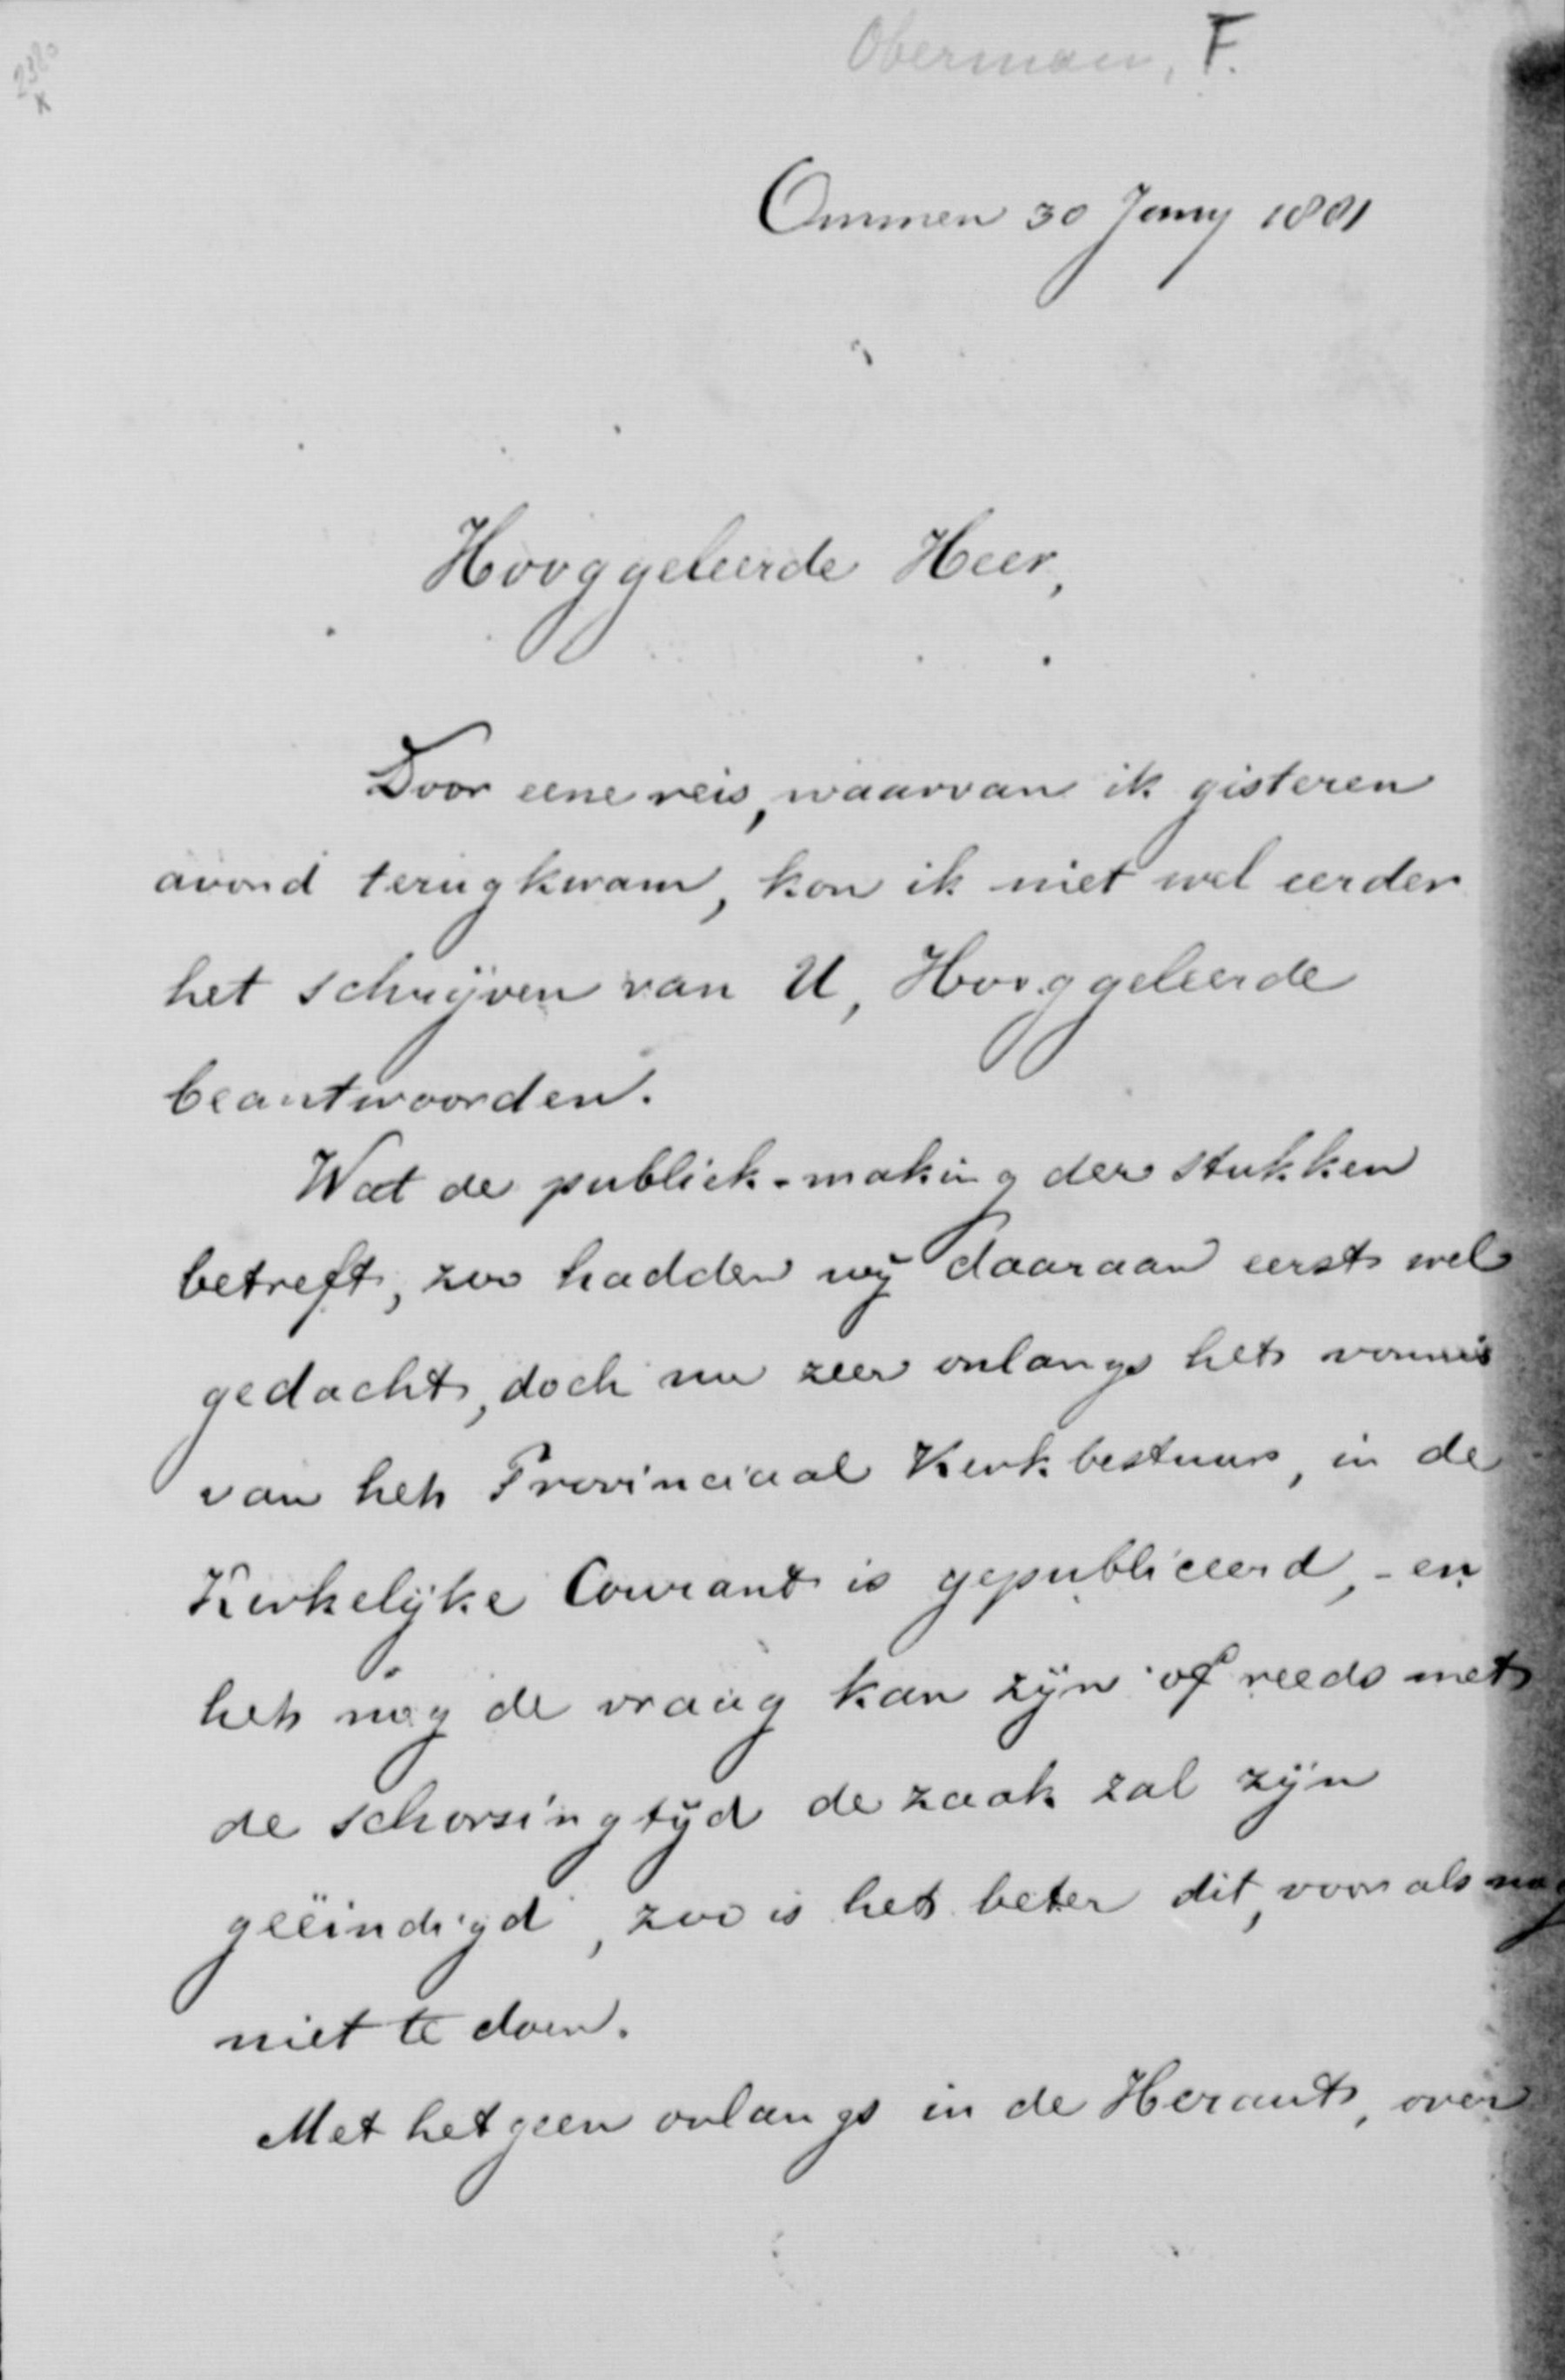 2380
Oberman, F.
Ommen 30 Juny 1881
Hooggeleerde Heer,
Door eene reis, waarvan ik gisteren
avond terugkwam, kon ik niet wel eerder
het schrijven van U, Hooggeleerde
beantwoorden.
Wat de publiek-making der stukken
betreft, zoo hadden wij daaraan eerst wel
gedacht, doch nu zeer onlangs het vonnis
van het Provinciaal Kerkbestuur, in de
Kerkelijke Courant is gepubliceerd, - en
het nog de vraag kan zijn of reeds met
de schorsingtijd de zaak zal zijn
geëindigd, zoo is het beter dit, voor als nog
niet te doen.
Met hetgeen onlangs in de Heraut, over